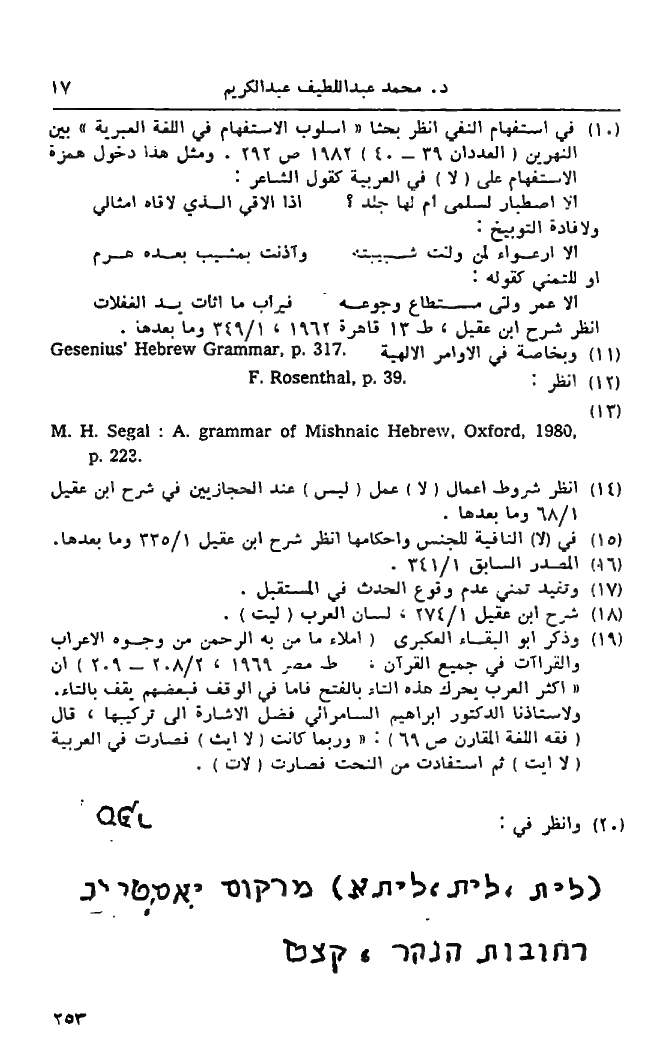 د. محمد عبداللطيف عبدالكريم ١٧
(١٠) في استفهام النفي انظر بحثنا « اسلوب الاستفهام في اللغة العبرية » بين
النهرين ( العددان ٣٩ – ٤٠ ) ١٩٨٢ ص ٢٩٢ . ومثل هذا دخول همزة
الاستفهام على ( لا ) في العربية كقول الشاعر :
الا اصطبار لسلمى ام لها جلد ؟ اذا الاقي الذي لاقاه امثالي
ولافادة التوبيخ :
الا ارعواء لمن ولت شبيبته وآذنت بمشيب بعده هرم
او للتمني كقوله :
الا عمر ولى مستطاع رجوعه فيرأب ما اثأت يد الغفلات
انظر شرح ابن عقيل ، ط ١٣ قاهرة ١٩٦٢ ، ٣٤٩/١ وما بعدها .
(١١) وبخاصة في الاوامر الالهية Gesenius' Hebrew Grammar, p. 317.
(١٢) انظر : F. Rosenthal, p. 39.
(١٣)
M. H. Segal : A. grammar of Mishnaic Hebrew, Oxford, 1980,
p. 223.
(١٤) انظر شروط اعمال ( لا ) عمل ( ليس ) عند الحجازيين في شرح ابن عقيل
٦٨/١ وما بعدها .
(١٥) في (لا) النافية للجنس واحكامها انظر شرح ابن عقيل ٣٣٥/١ وما بعدها.
(١٦) المصدر السابق ٣٤١/١ .
(١٧) وتفيد تمني عدم وقوع الحدث في المستقبل .
(١٨) شرح ابن عقيل ٢٧٤/١ ، لسان العرب ( ليت ) .
(١٩) وذكر ابو البقاء العكبرى ( املاء ما من به الرحمن من وجوه الاعراب
والقراآت في جميع القرآن ، ط مصر ١٩٦٩ ، ٢٠٨/٢ – ٢٠٩ ) ان
« اكثر العرب يحرك هذه التاء بالفتح فاما في الوقف فبعضهم يقف بالتاء.
ولاستاذنا الدكتور ابراهيم السامرائي فضل الاشارة الى تركيبها ، قال
( فقه اللغة المقارن ص ٦٩ ) : « وربما كانت ( لا ايث ) فصارت في العربية
( لا ايت ) ثم استفادت من النحت فصارت ( لات ) .
(٢٠) وانظر في :
(לית ،לית،ליתא) מרקוס
רחובות הנהר ،
٢٥٣